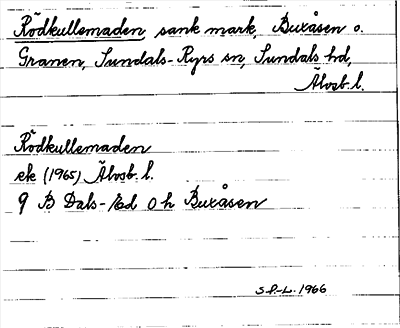 Rödkullemaden, sank mark, Buxåsen o.
Granen, Sundals-Ryrs sn, Sundals hd,
Älvsb. l.
Rödkullemaden
ek (1965) Älvsb. l.
9 B Dals-Ed 0 h Buxåsen
S.P.-L. 1966